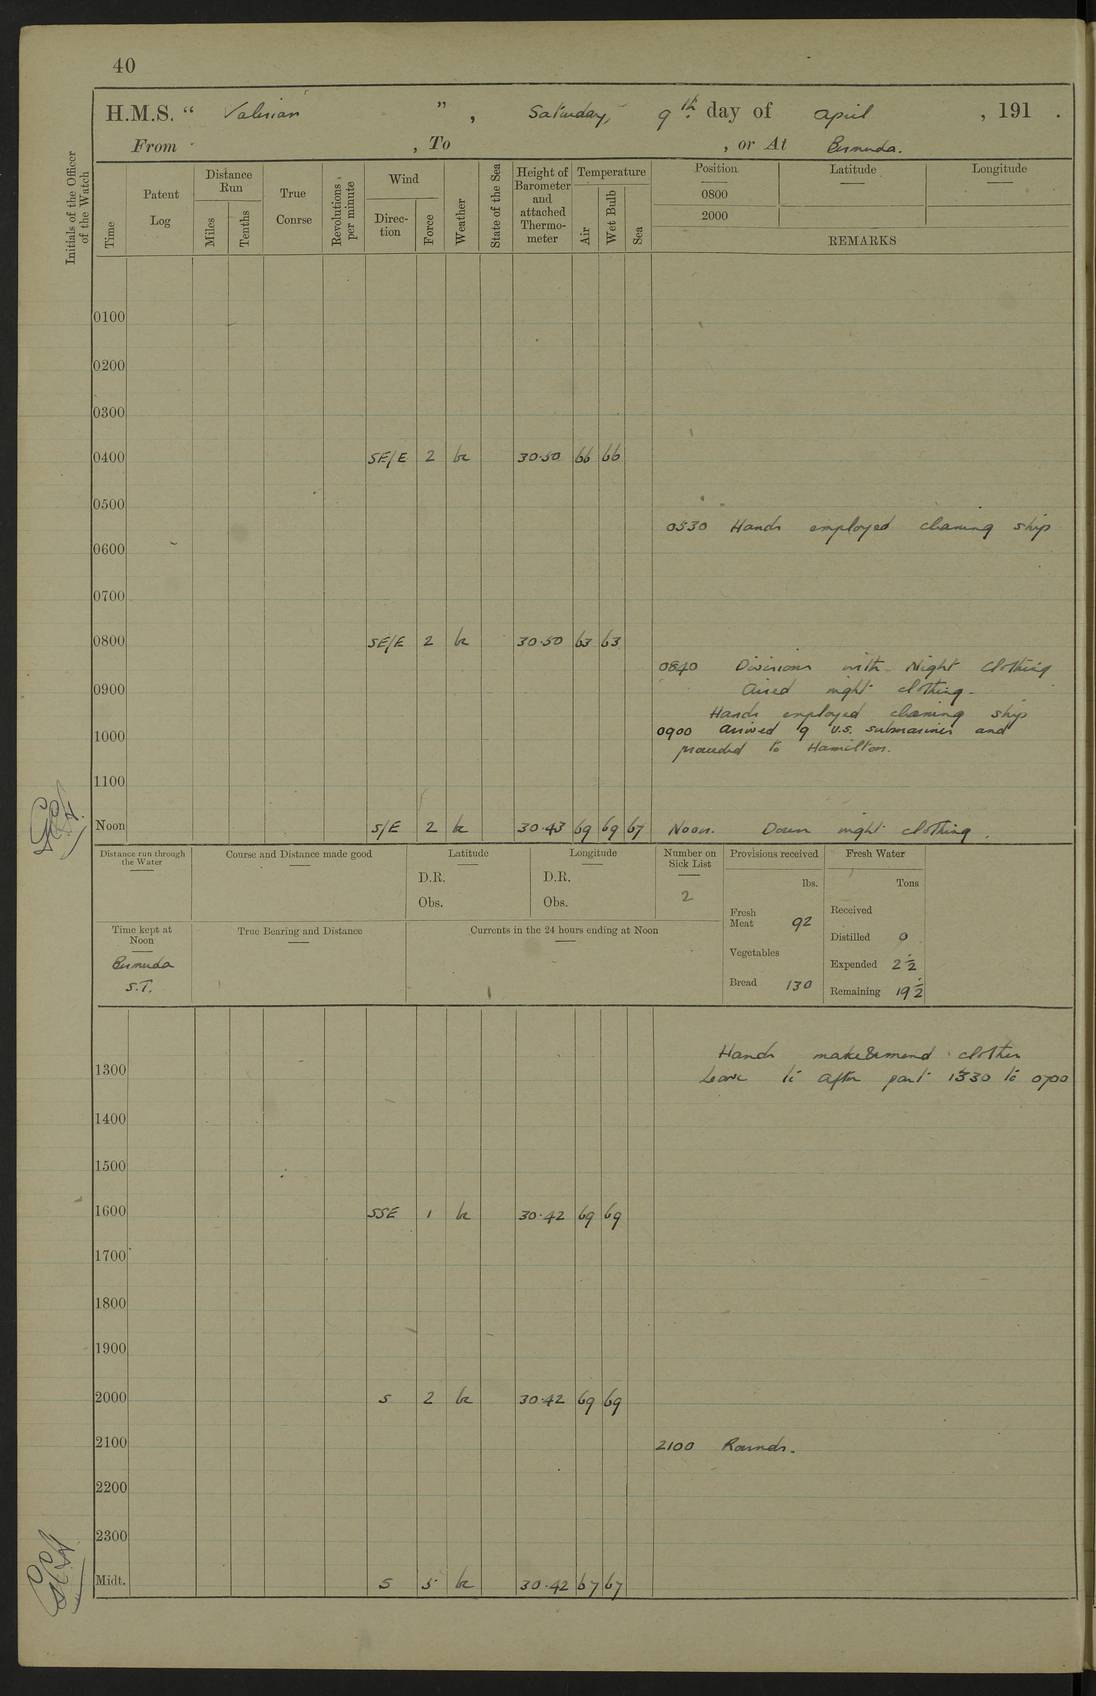 40
H.M.S. “ Valerian ” , Saturday, 9th day of April , 191 .
From , To , or At Bermuda.
Initials of the Officer of the Watch
Time
Patent Log
Distance Run
Miles
Tenths
True Course
Revolutions per minute
Wind
Direc- tion
Force
Weather
State of the Sea
Height of Barometer and attached Thermo- meter
Temperature
Air
Wet Bulb
Sea
Position
Latitude
Longitude
0800
2000
REMARKS
0100
0200
0300
0400 SE/E 2 bc 30.50 66 66
0500
0530 Hands employed cleaning ship
0600
0700
0800 SE/E 2 bc 30.50 63 63
0840 Divisions with Night Clothing
0900 Aired night clothing.
Hands employed cleaning ship
1000 0900 Arrived 9 U.S. submarines and
proceeded to Hamilton.
1100
Noon S/E 2 bc 30.43 69 69 67 Noon. Down night clothing.
Distance run through the Water
Course and Distance made good
Latitude
D.R.
Obs.
Longitude
D.R.
Obs.
Number on Sick List
2
Provisions received
lbs.
Fresh Meat 92
Vegetables
Bread 130
Fresh Water
Tons
Received
Distilled 0
Expended 2½
Remaining 19½
Time kept at Noon
Bermuda
S.T.
True Bearing and Distance
Currents in the 24 hours ending at Noon
Hands make & mend clothes
1300 Leave to after part 1330 to 0700
1400
1500
1600 SSE 1 bc 30.42 69 69
1700
1800
1900
2000 S 2 bc 30.42 69 69
2100 2100 Rounds.
2200
2300
Midt. S 5 bc 30.42 67 67